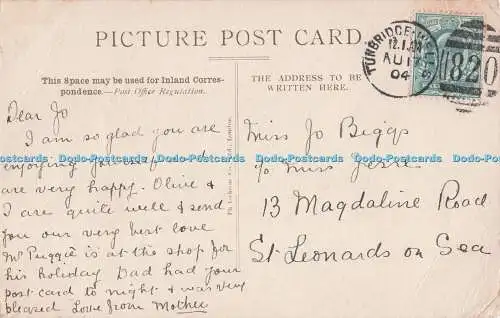 PICTURE POST CARD.
TUNBRIDGE-WELLS
04
820
This Space may be used for Inland Corres-
pondence.—Post Office Regulation.
THE ADDRESS TO BE
WRITTEN HERE.
Dear Jo
I am so glad you are
enjoying yourself and
are very happy. Olive &
I are quite well & send
you our very best love
Mr Puggie is at the shop for
his holiday Dad had your
post card to night & was very
pleased Love from Mother
Miss Jo Biggs
c/o Miss
13 Magdaline Road
St Leonards on Sea
Dodo-Postcards Dodo-Postcards Dodo-Postcards Dodo-Postcards Dodo-Postcards
Dodo-Postcards Dodo-Postcards Dodo-Postcards Dodo-Postcards Dodo-Postcards